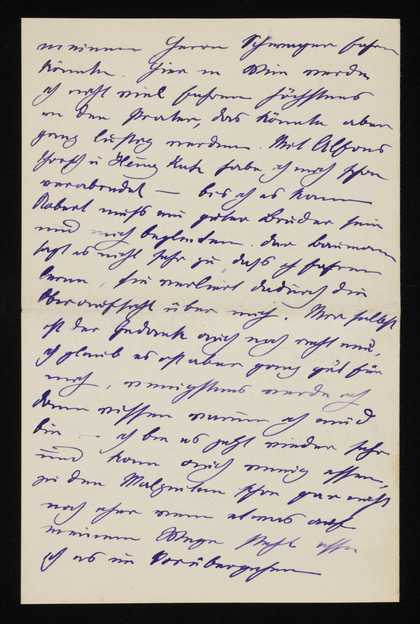 meinem Herrn Schwager fahren
könnte. Hier in Wien werde
ich nicht viel fahren höchstens
in den Prater, das könnte aber
ganz lustig werden. Mit Alfons
habe ich mich schon
verabredet — bis ich es kann
Robert muß ein guter Bruder sein
und mich begleiten. Der
sagt es nicht sehr zu, daß ich fahren
lerne, sie verliert dadurch die
Oberaufsicht über mich. Mir selbst
ist der Gedanke auch noch recht neu,
ich glaub es ist aber ganz gut für
mich, wenigstens werde ich
dann wissen warum ich müd
bin — ich bin es jetzt wieder sehr
und kann auch wenig essen,
zu den Malzeiten schon gar nicht
noch eher wenn etwas auf
meinem Wege steht esse
ich es im Vorübergehen